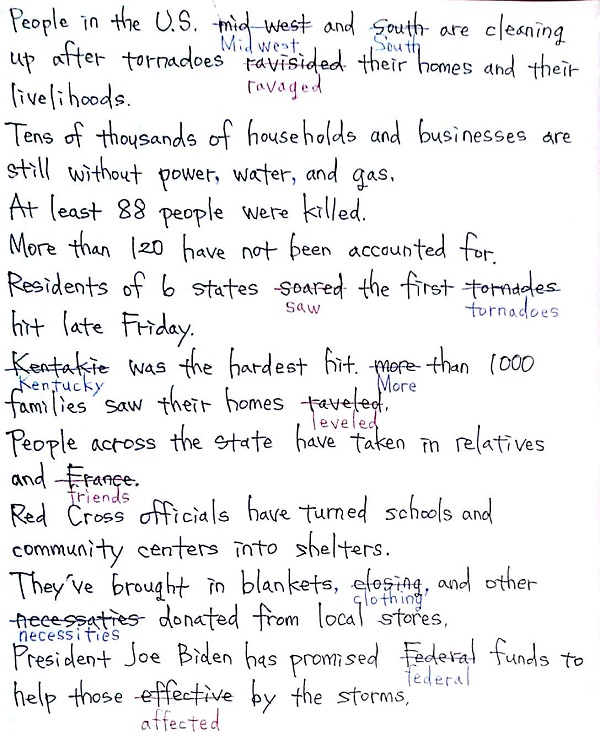 People in the U.S. mid west and South are cleaning
Midwest South
up after tornadoes ravisided their homes and their
ravaged
livelihoods.
Tens of thousands of households and businesses are
still without power, water, and gas.
At least 88 people were killed.
More than 120 have not been accounted for.
Residents of 6 states soared the first tornades
saw tornadoes
hit late Friday.
Kentakie was the hardest hit. more than 1000
Kentucky More
families saw their homes raveled.
leveled
People across the state have taken in relatives
and France.
friends
Red Cross officials have turned schools and
community centers into shelters.
They've brought in blankets, closing, and other
clothing
necessaties donated from local stores.
necessities
President Joe Biden has promised Federal funds to
federal
help those effective by the storms.
affected